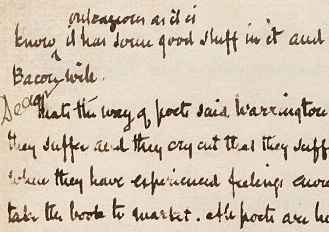 outrageous as it is
know, it has some good stuff in it and
Bacon will.
Dedgn
thats the way of poets said Warrington
they suffer and they cry out that they suff
when they have experienced feelings
take the book to market. All poets are hu